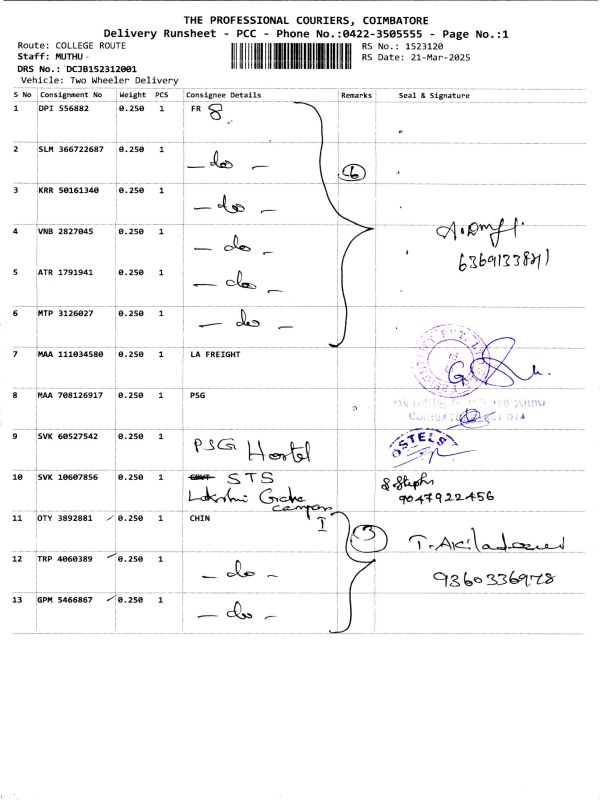 THE PROFESSIONAL COURIERS, COIMBATORE
Delivery Runsheet - PCC - Phone No.:0422-3505555 - Page No.:1
Route: COLLEGE ROUTE RS No.: 1523120
Staff: MUTHU RS Date: 21-Mar-2025
DRS No.: DCJB152312001
Vehicle: Two Wheeler Delivery
S No Consignment No Weight PCS Consignee Details Remarks Seal & Signature
1 DPI 556882 0.250 1 FR 8
2 SLM 366722687 0.250 1 - do - 6
3 KRR 50161340 0.250 1 - do -
4 VNB 2827045 0.250 1 - do -
6369133841
5 ATR 1791941 0.250 1 - do -
6 MTP 3126027 0.250 1 - do -
7 MAA 111034580 0.250 1 LA FREIGHT
8 MAA 708126917 0.250 1 PSG
9 SVK 60527542 0.250 1 PSG Hostel
10 SVK 10607856 0.250 1 STS
Campus I 9047922456
11 OTY 3892881 0.250 1 CHIN 3
12 TRP 4060389 0.250 1 - do - 9360336978
13 GPM 5466867 0.250 1 - do -